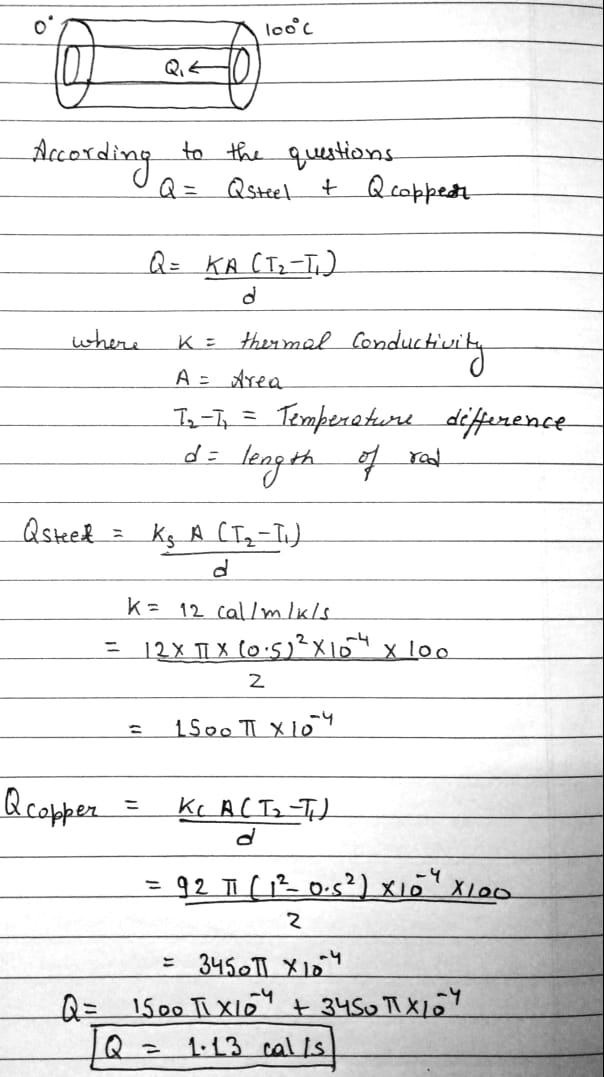 0° 100°C
Q₁ ←
According to the questions
Q = Qsteel + Qcopper
Q = KA (T₂-T₁)
d
where K = thermal Conductivity
A = Area
T₂-T₁ = Temperature difference
d = length of rad
Qsteel = Ks A (T₂-T₁)
d
K = 12 cal/m/k/s
= 12 x π x (0.5)² x 10⁻⁴ x 100
2
= 1500 π x 10⁻⁴
Qcopper = Kc A (T₂-T₁)
d
= 92 π (1² - 0.5²) x 10⁻⁴ x 100
2
= 3450 π x 10⁻⁴
Q = 1500 π x 10⁻⁴ + 3450 π x 10⁻⁴
Q = 1.13 cal/s